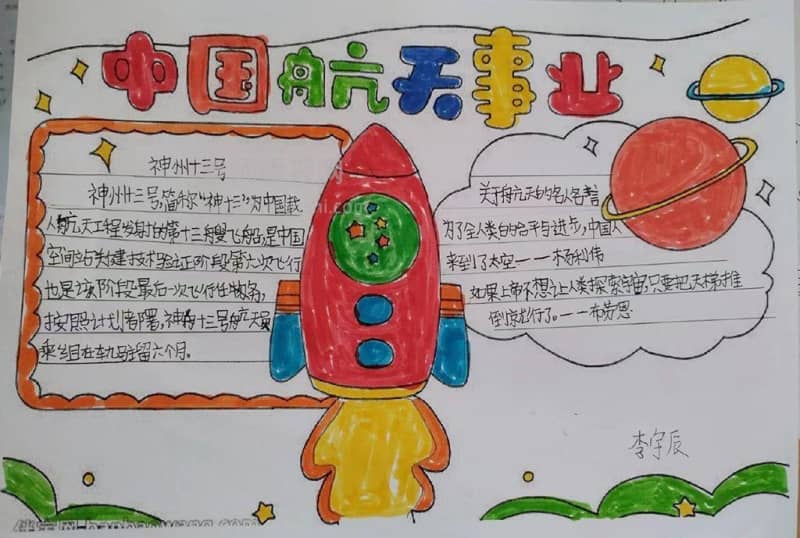 中国航天事业
神州十三号
神州十三号,简称“神十三”为中国载
人航天工程发射的第十三艘飞船,是中国
空间站关键技术验证阶段第六次飞行
也是该阶段最后一次飞行任务,
按照计划部署,神舟十三号航天员
乘组在轨驻留六个月。
关于航天的名人名言
为了全人类的和平与进步,中国人
来到了太空——杨利伟
如果上帝不想让人类探索宇宙,只要把天梯推
倒就行了。——布劳恩
李宇辰